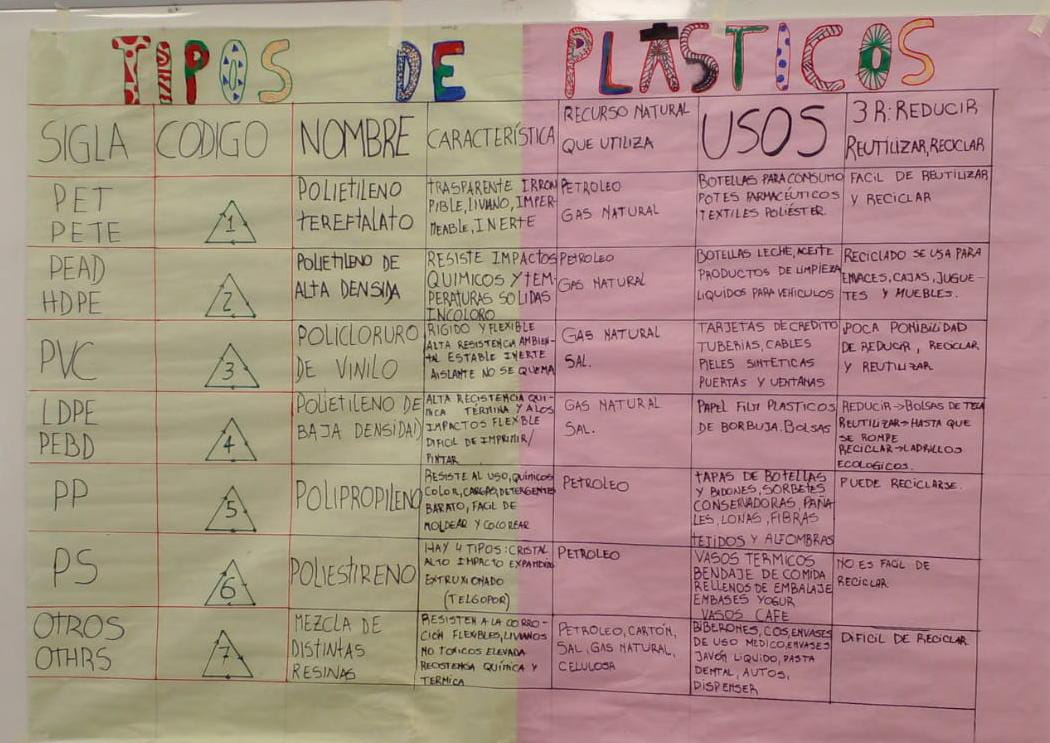 TIPOS DE PLASTICOS
SIGLA
CODIGO
NOMBRE
CARACTERÍSTICA
RECURSO NATURAL
QUE UTILIZA
USOS
3R: REDUCIR
REUTILIZAR, RECICLAR
PET
PETE
1
POLIETILENO
TEREFTALATO
TRASPARENTE IRROM
PIBLE, LIVIANO, IMPER-
MEABLE, INERTE
PETROLEO
GAS NATURAL
BOTELLAS PARA CONSUMO
POTES FARMACÉUTICOS
TEXTILES POLIÉSTER
FACIL DE REUTILIZAR
Y RECICLAR
PEAD
HDPE
2
POLIETILENO DE
ALTA DENSIDA
RESISTE IMPACTOS
QUIMICOS Y TEM-
PERATURAS SOLIDAS
INCOLORO
PETROLEO
GAS NATURAL
BOTELLAS LECHE, ACEITE
PRODUCTOS DE LIMPIEZA
LIQUIDOS PARA VEHICULOS
RECICLADO SE USA PARA
ENVACES, CAJAS, JUGUE-
TES Y MUEBLES.
PVC
3
POLICLORURO
DE VINILO
RIGIDO Y FLEXIBLE
ALTA RESISTENCIA AMBIEN-
TAL ESTABLE INERTE
AISLANTE NO SE QUEMA
GAS NATURAL
SAL.
TARJETAS DE CREDITO
TUBERIAS, CABLES
PIELES SINTETICAS
PUERTAS Y VENTANAS
POCA POSIBILIDAD
DE REDUCIR, RECICLAR
Y REUTILIZAR
LDPE
PEBD
4
POLIETILENO DE
BAJA DENSIDAD
ALTA RECISTENCIA QUI-
MICA TERMINA Y A LOS
IMPACTOS FLEXIBLE
DIFICIL DE IMPRIMIR/
PINTAR
GAS NATURAL
SAL.
PAPEL FILM PLASTICOS
DE BORBUJA. BOLSAS
REDUCIR→BOLSAS DE TELA
REUTILIZAR→HASTA QUE
SE ROMPE
RECICLAR→LADRILLOS
ECOLOGICOS.
PP
5
POLIPROPILENO
RESISTE AL USO, QUÍMICOS
COLOR, CARGAS, DETERGENTES
BARATO, FACIL DE
MOLDEAR Y COLOREAR
PETROLEO
TAPAS DE BOTELLAS
Y BIDONES, SORBETES
CONSERVADORAS, PAÑA
LES, LONAS, FIBRAS
TEJIDOS Y ALFOMBRAS
PUEDE RECICLARSE.
PS
6
POLIESTIRENO
HAY 4 TIPOS: CRISTAL
ALTO IMPACTO EXPANDIDO
EXTRUXIONADO
(TELGOPOR)
PETROLEO
VASOS TERMICOS
BENDAJE DE COMIDA
RELLENOS DE EMBALAJE
EMBASES YOGUR
VASOS CAFE
NO ES FACIL DE
RECICLAR
OTROS
OTHRS
7
MEZCLA DE
DISTINTAS
RESINAS
RESISTEN A LA CORRO-
CIÓN FLEXIBLES, LIVIANOS
NO TOXICOS ELEVADA
RECISTENCIA QUÍMICA Y
TERMICA
PETROLEO, CARTÓN,
SAL, GAS NATURAL,
CELULOSA
BIBERONES, CDS, ENVASES
DE USO MEDICO, ENVASES
JAVÓN LIQUIDO, PASTA
DENTAL, AUTOS,
DISPENSER
DIFICIL DE RECICLAR